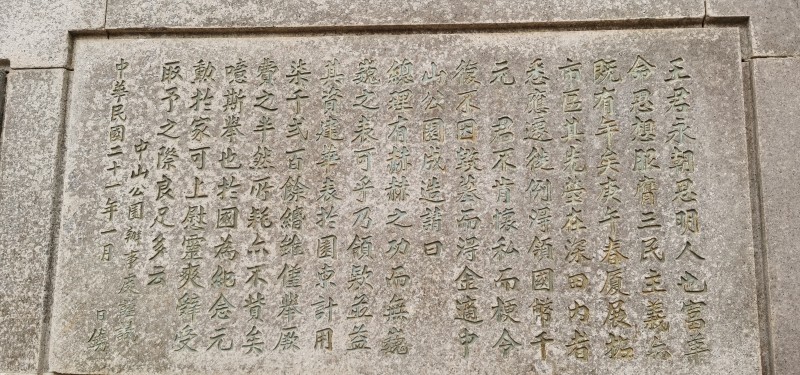 王君永朝思明人也富革
命思想服膺三民主義
既有年矣庚午春廈展拓
市區其先塋在深田內者
悉應遷徙例得領國幣千
元　君不肯懷私而梗令
復不因發墓而得金適中
山公園成造請曰
總理有赫赫之功而無巍
峩之表可乎乃領款並益
其資建華表於園東計用
柒千弍百餘緡維僅舉厥
費之半然所耗亦不貲矣
噫斯舉也於國為紀念元
勳於家可上慰靈爽辭受
取予之際良足多云
中山公園辦事處
中華民國二十一年一月　日